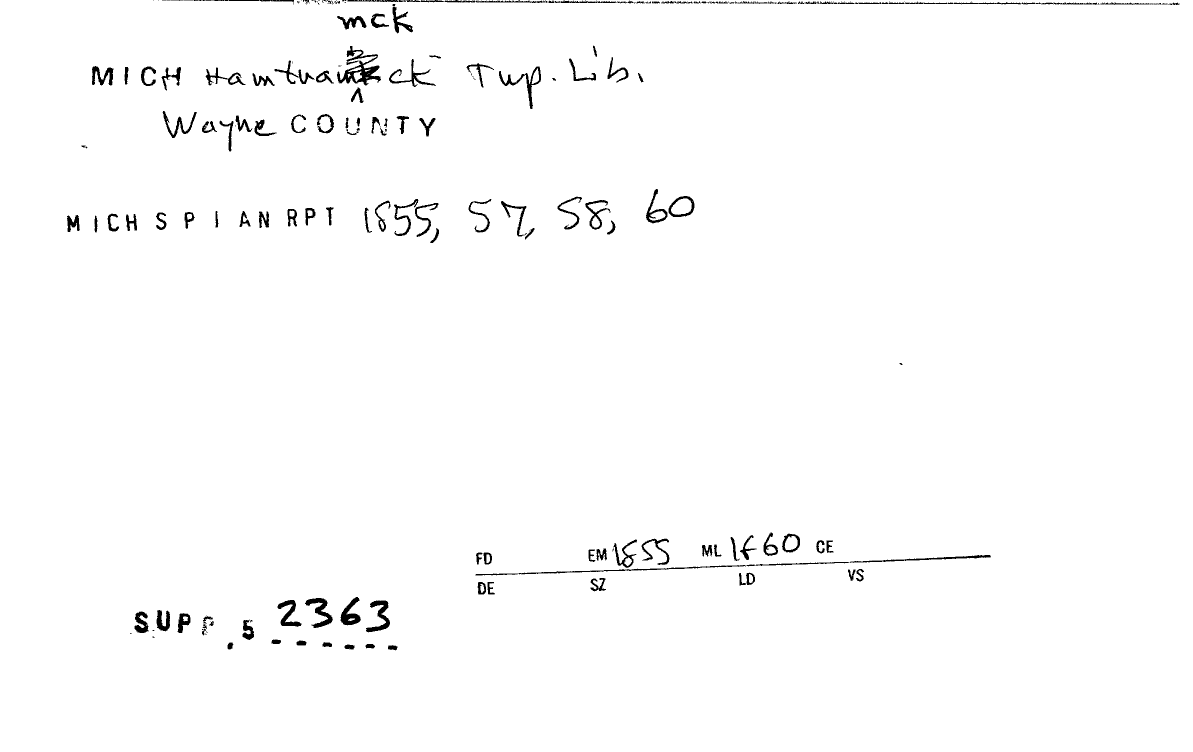 mck
MICH Hamtramck Twp. Lib.
Wayne COUNTY
MICH S P I AN RPT 1855, 57, 58, 60
FD EM 1855 ML 1860 CE
DE SZ LD VS
SUPP.5 2363